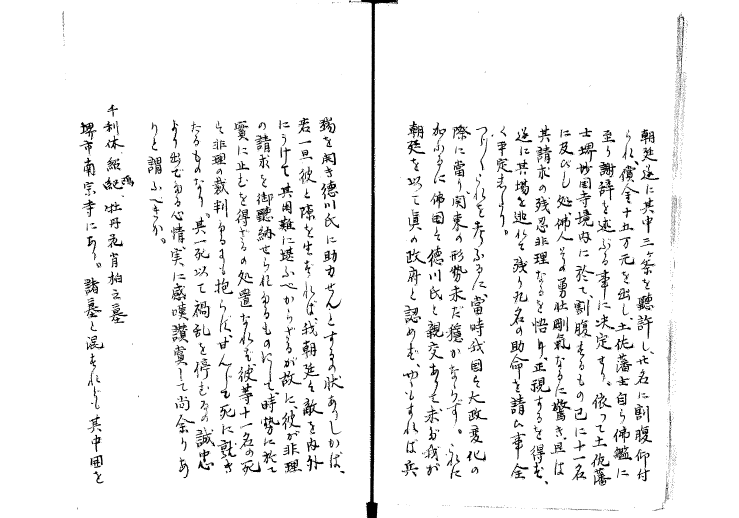 朝廷遂に其中三ヶ条を聴許し、廿名に割腹仰付
られ、償金十五万元を出し、土佐藩士自ら佛艦に
至り謝辞を述ぶる事に決定す。依つて土佐藩
士堺妙国寺境内に於て割腹するもの已に十一名
に及びし処、佛人その勇壮剛氣なるに驚き、且は
其請求の残忍非理なるを悟り、正視するを得ず、
遂に其場を逃れて残り九名の助命を請ひ、事全
く平定せり。
つらつら之を考ふるに、當時我国は大政変化の
際に當り、関東の形勢未だ穏かならず。之に
加ふるに佛国は徳川氏と親交ありて未だ我が
朝廷を以て真の政府と認めず、ややもすれば兵
端を開き徳川氏に助力せんとするの状ありしかば、
若一旦彼と隙を生ずれば、我朝廷は敵を内外
にうけて其困難に堪ふべからざるが故に、彼が非理
の請求を御聴納せられたるものにして、時勢に於て
實に止むを得ざるの処置なれども、彼等十一名の死
は非理の裁判なるにも拘らず、甘んじて死に就き
たるものなり。其一死以て禍乱を停むるの誠忠
より出でたる心情実に感嘆讃賞して尚余りあ
りと謂ふべきか。
千利休、紹鴎、牡丹花肖柏之墓
堺市南宗寺にあり。諸墓と混ずれども其中囲を